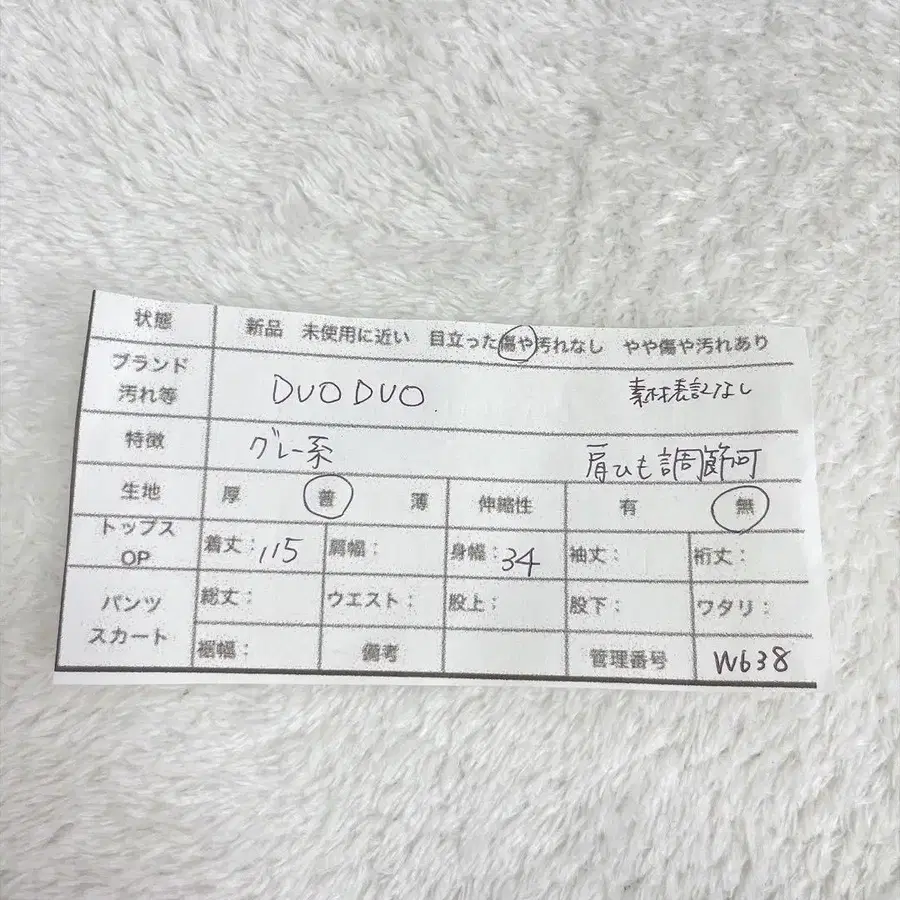 状態 新品 未使用に近い 目立った傷や汚れなし やや傷や汚れあり
ブランド
汚れ等 DUO DUO 素材表記なし
特徴 グレー系 肩ひも調節可
生地 厚 普 薄 伸縮性 有 無
トップス
OP 着丈: 115 肩幅: 身幅: 34 袖丈: 裄丈:
パンツ
スカート 総丈: ウエスト: 股上: 股下: ワタリ:
裾幅: 備考 管理番号 W638